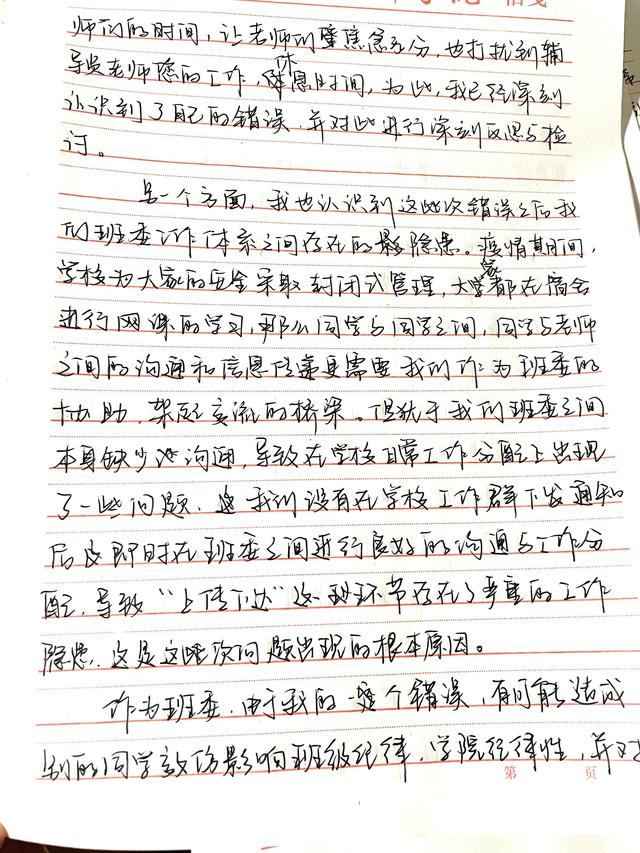 信笺
师们的时间，让老师们焦急万分，也打扰到辅
导员老师隐的工作，休息时间，为此，我已经深刻
认识到了自己的错误，并对此进行深刻反思与检
讨。
另一个方面，我也认识到这些次错误之后我
们班委工作体系之间存在的隐患。疫情期间，
学校为大家的安全采取封闭式管理，大家都在宿舍
进行网课的学习，那么同学与同学之间，同学与老师
之间的沟通和信息传递更需要我们作为班委的
协助，架起交流的桥梁。但犹于我们班委之间
本身缺少沟通，导致在学校日常工作分配上出现
了一些问题，我们没有在学校工作群下发通知
后及即时在班委之间进行良好的沟通与工作分
配，导致“上传下达”这环节存在了严重的工作
隐患，这是这些次问题出现的根本原因。
作为班委，由于我的一个错误，有可能造成
别的同学效仿影响班级纪律，学院纪律性，并对
第 页